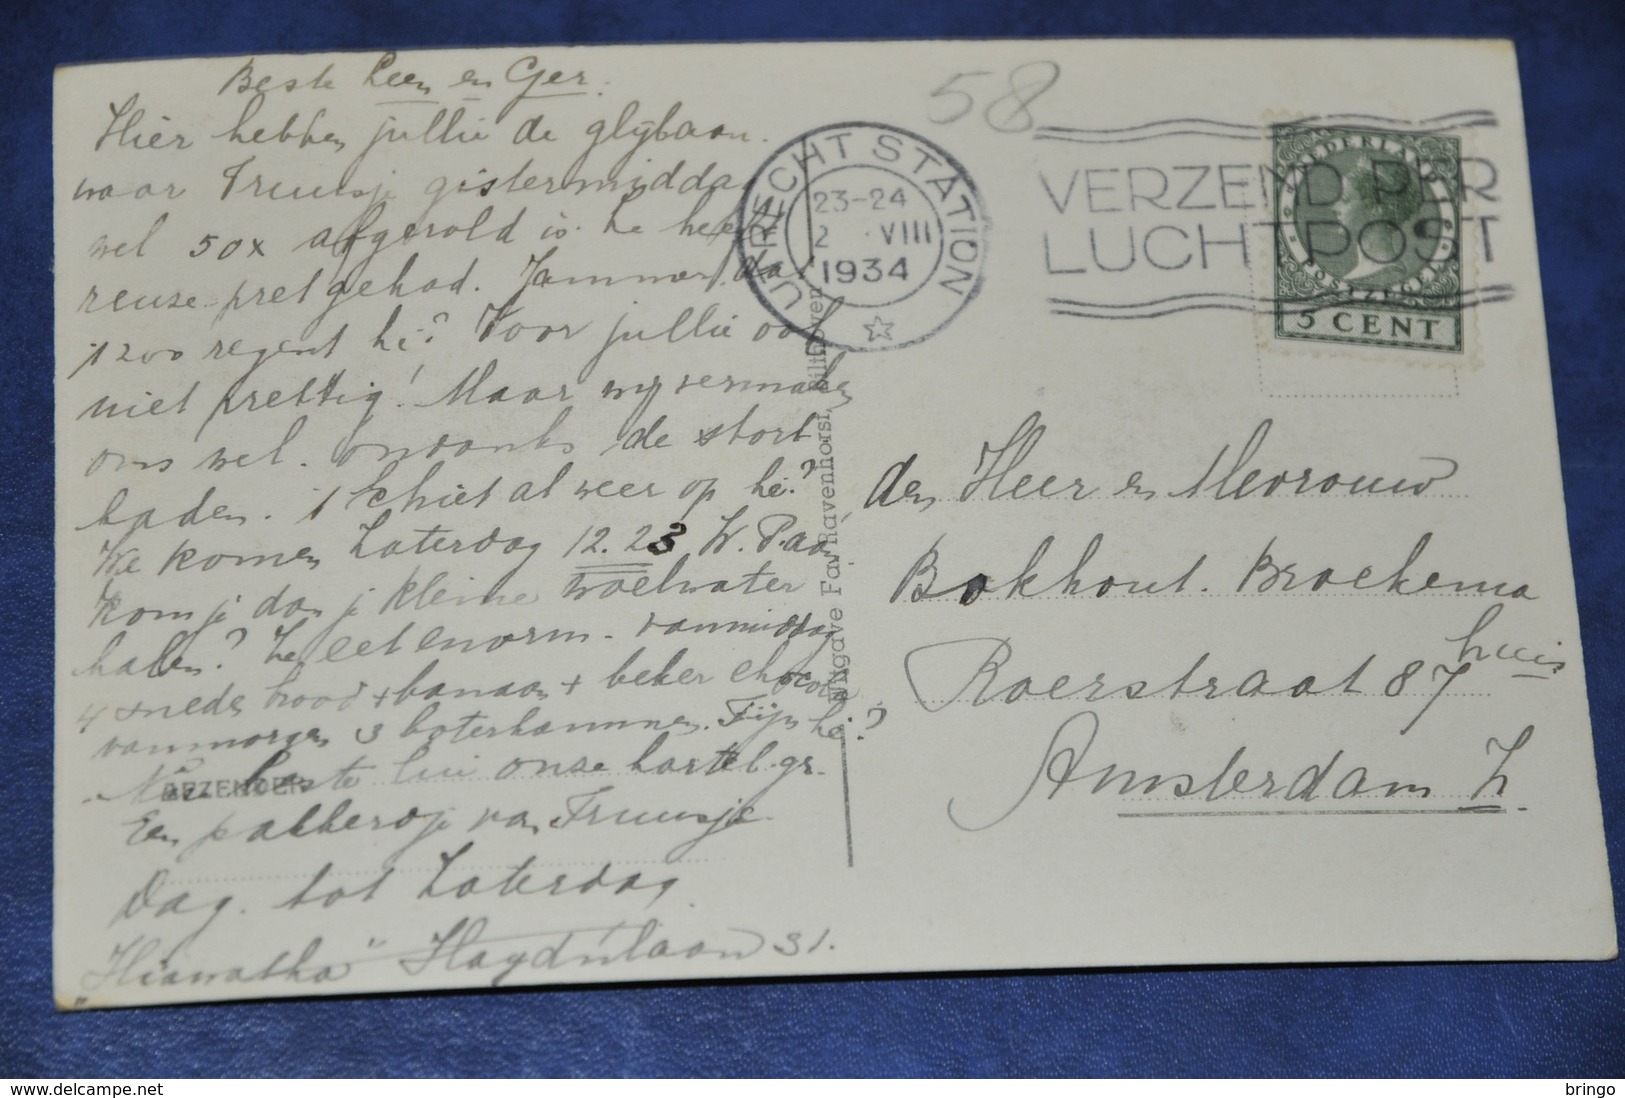 Beste Leen en Ger.
Hier hebben jullie de glijbaan.
waar Truusje gistermiddag
wel 50x afgerold is. Ze heeft
reuze pret gehad. Jammer, dat
't zoo regent hè? Voor jullie ook
niet prettig! Maar wij vermaken
ons wel. ondanks de stort
baden. 't Schiet al weer op hè?
We komen Zaterdag 12.23 W.P. aan
Kom je dan je kleine woelwater
halen? Ze eet enorm. vanmiddag
4 sneden brood + banaan + beker chocola
vanmorgen 3 boterhammen. Fijn hè?
beste lui onze hartel. gr.
Een pakkerdje van Truusje.
Dag. tot Zaterdag
Hiawatha" Haydnlaan 31.
AFZENDER:
Uitgave Fa. v. Ravenhorst, Bilthoven
58
UTRECHT STATION
23-24
2 VIII
1934
VERZEND PER
LUCHTPOST
NEDERLAND
POSTZEGEL
5 CENT
den Heer en Mevrouw
Bokhout. Broekema
Roerstraat 87 huis
Amsterdam Z.
bringo